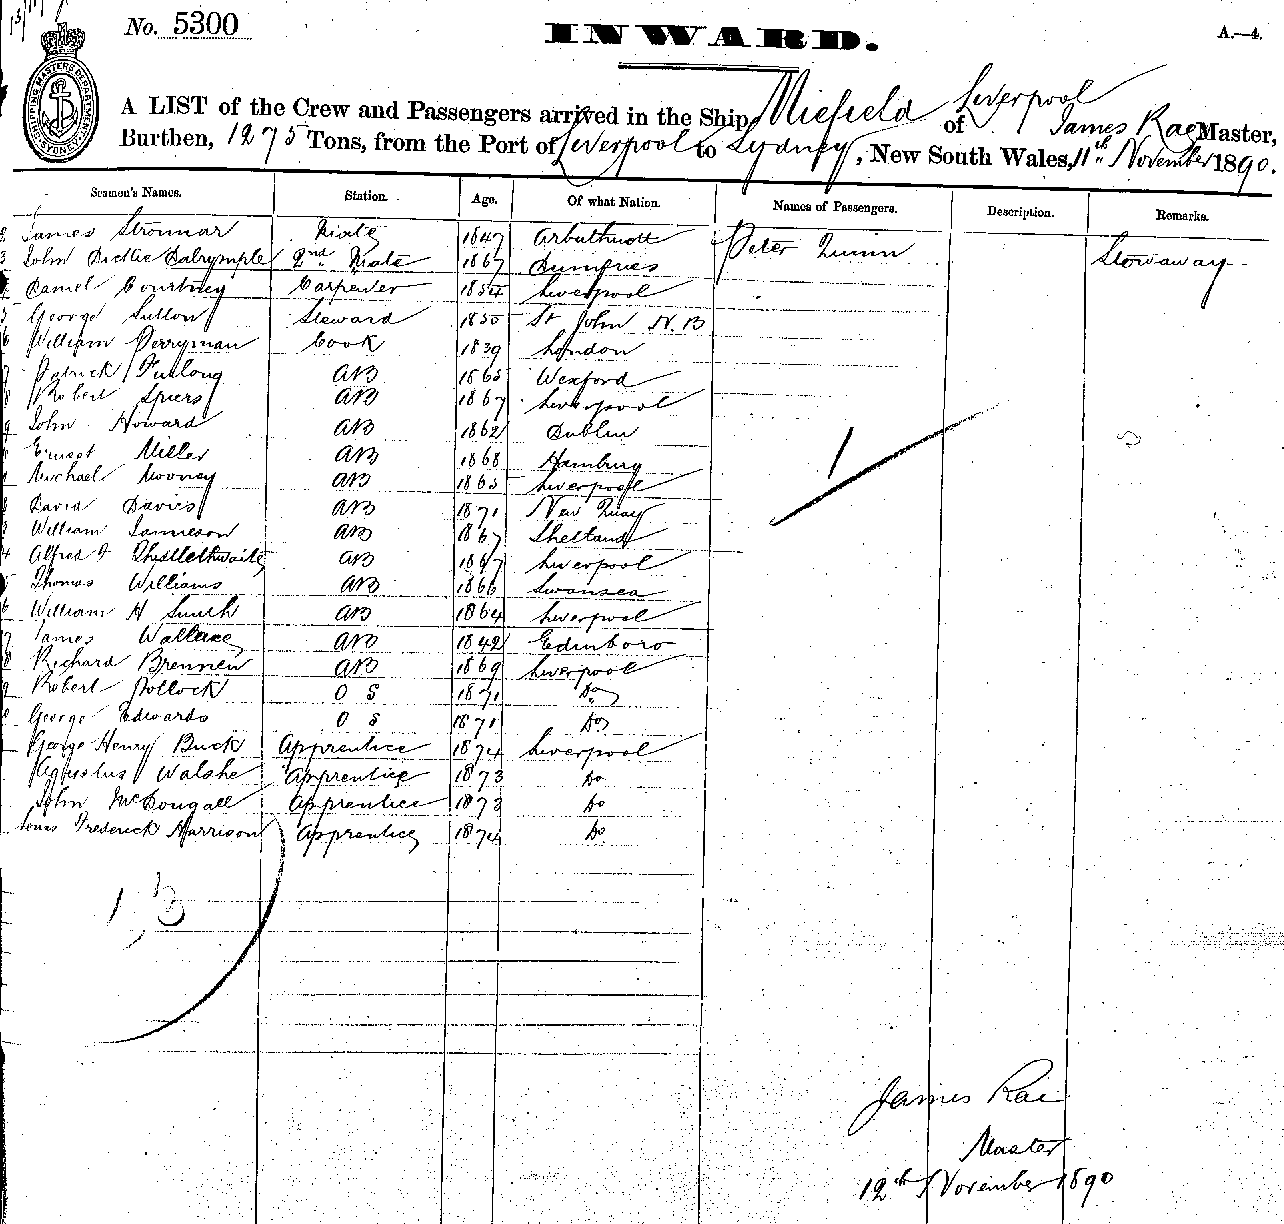 No. 5300
INWARD.
A.—4.
SHIPPING MASTERS DEPARTMENT SYDNEY
A LIST of the Crew and Passengers arrived in the Ship Miefield of Liverpool James Rae Master,
Burthen, 1275 Tons, from the Port of Liverpool to Sydney, New South Wales, 11th November 1890.
Seamen's Names. Station. Age. Of what Nation. Names of Passengers. Description. Remarks.
2 James Mate 1847 Arbuthnott Peter Quinn Stowaway
3 John Dalrymple 2nd Mate 1867 Dumfries
Daniel Courtney Carpenter 1854 Liverpool
5 George Sutton Steward 1850 St John N.B
6 William Perryman Cook 1839 London
7 Patrick Furlong AB 1865 Wexford
8 Robert Spiers AB 1867 Liverpool
9 John Howard AB 1862 Dublin
Ernest Miller AB 1868 Hamburg
Michael Mooney AB 1865 Liverpool
David Davies AB 1871 New Quay
William Jamieson AB 1867 Shetland
4 Alfred AB 1867 Liverpool
5 Thomas Williams AB 1866 Swansea
6 William H Smith AB 1864 Liverpool
7 James Wallace AB 1842 Edinboro
8 Richard Brennen AB 1869 Liverpool
9 Robert Pollock O S 1871 Do
George Edwards O S 1871 Do
George Henry Buck Apprentice 1874 Liverpool
Agustus Walshe Apprentice 1873 Do
John McDougall Apprentice 1873 Do
Frederick Harrison Apprentice 1874 Do
James Rae
Master
12th November 1890